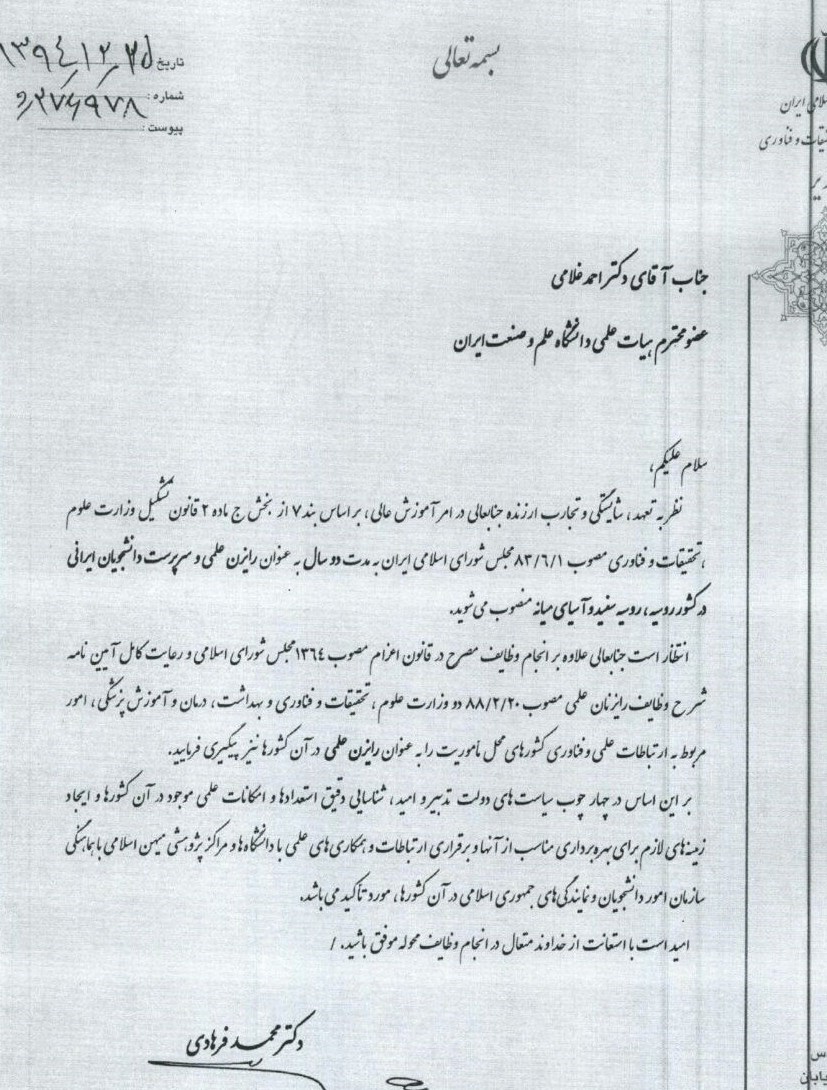 بسمه تعالی
تاریخ ۱۳۹۴/۱۲/۲۵
شماره: ۲۷۶۹۷۸/و
پیوست:
اسلامی ایران
تحقیقات و فناوری
جناب آقای دکتر احمد غلامی
عضو محترم هیات علمی دانشگاه علم و صنعت ایران
سلام علیکم،
نظر به تعهد، شایستگی و تجارب ارزنده جنابعالی در امر آموزش عالی، بر اساس بند ۷ از بخش ج ماده ۲ قانون تشکیل وزارت علوم
، تحقیقات و فناوری مصوب ۸۳/۶/۱ مجلس شورای اسلامی ایران به مدت دو سال به عنوان رایزن علمی و سرپرست دانشجویان ایرانی
در کشور روسیه، روسیه سفید و آسیای میانه منصوب می شوید.
انتظار است جنابعالی علاوه بر انجام وظایف مصرح در قانون اعزام مصوب ۱۳۶۴ مجلس شورای اسلامی و رعایت کامل آیین نامه
شرح وظایف رایزنان علمی مصوب ۸۸/۲/۲۰ دو وزارت علوم، تحقیقات و فناوری و بهداشت، درمان و آموزش پزشکی، امور
مربوط به ارتباطات علمی و فناوری کشورهای محل مأموریت را به عنوان رایزن علمی در آن کشورها نیز پیگیری فرمایید.
بر این اساس در چهار چوب سیاست های دولت تدبیر و امید، شناسایی دقیق استعدادها و امکانات علمی موجود در آن کشورها و ایجاد
زمینه های لازم برای بهره برداری مناسب از آنها و برقراری ارتباطات و همکاری های علمی با دانشگاه ها و مراکز پژوهشی میهن اسلامی با هماهنگی
سازمان امور دانشجویان و نمایندگی های جمهوری اسلامی در آن کشورها، مورد تأکید می باشد.
امید است با استعانت از خداوند متعال در انجام وظایف محوله موفق باشید. /
دکتر محمد فرهادی